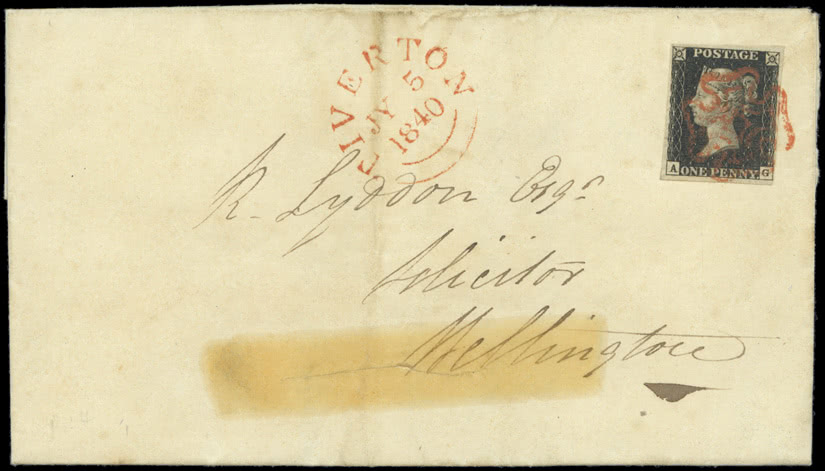 TIVERTON
JY 5
1840
POSTAGE
A ONE PENNY G
R. Lyddon Esqr
Solicitor
Wellington